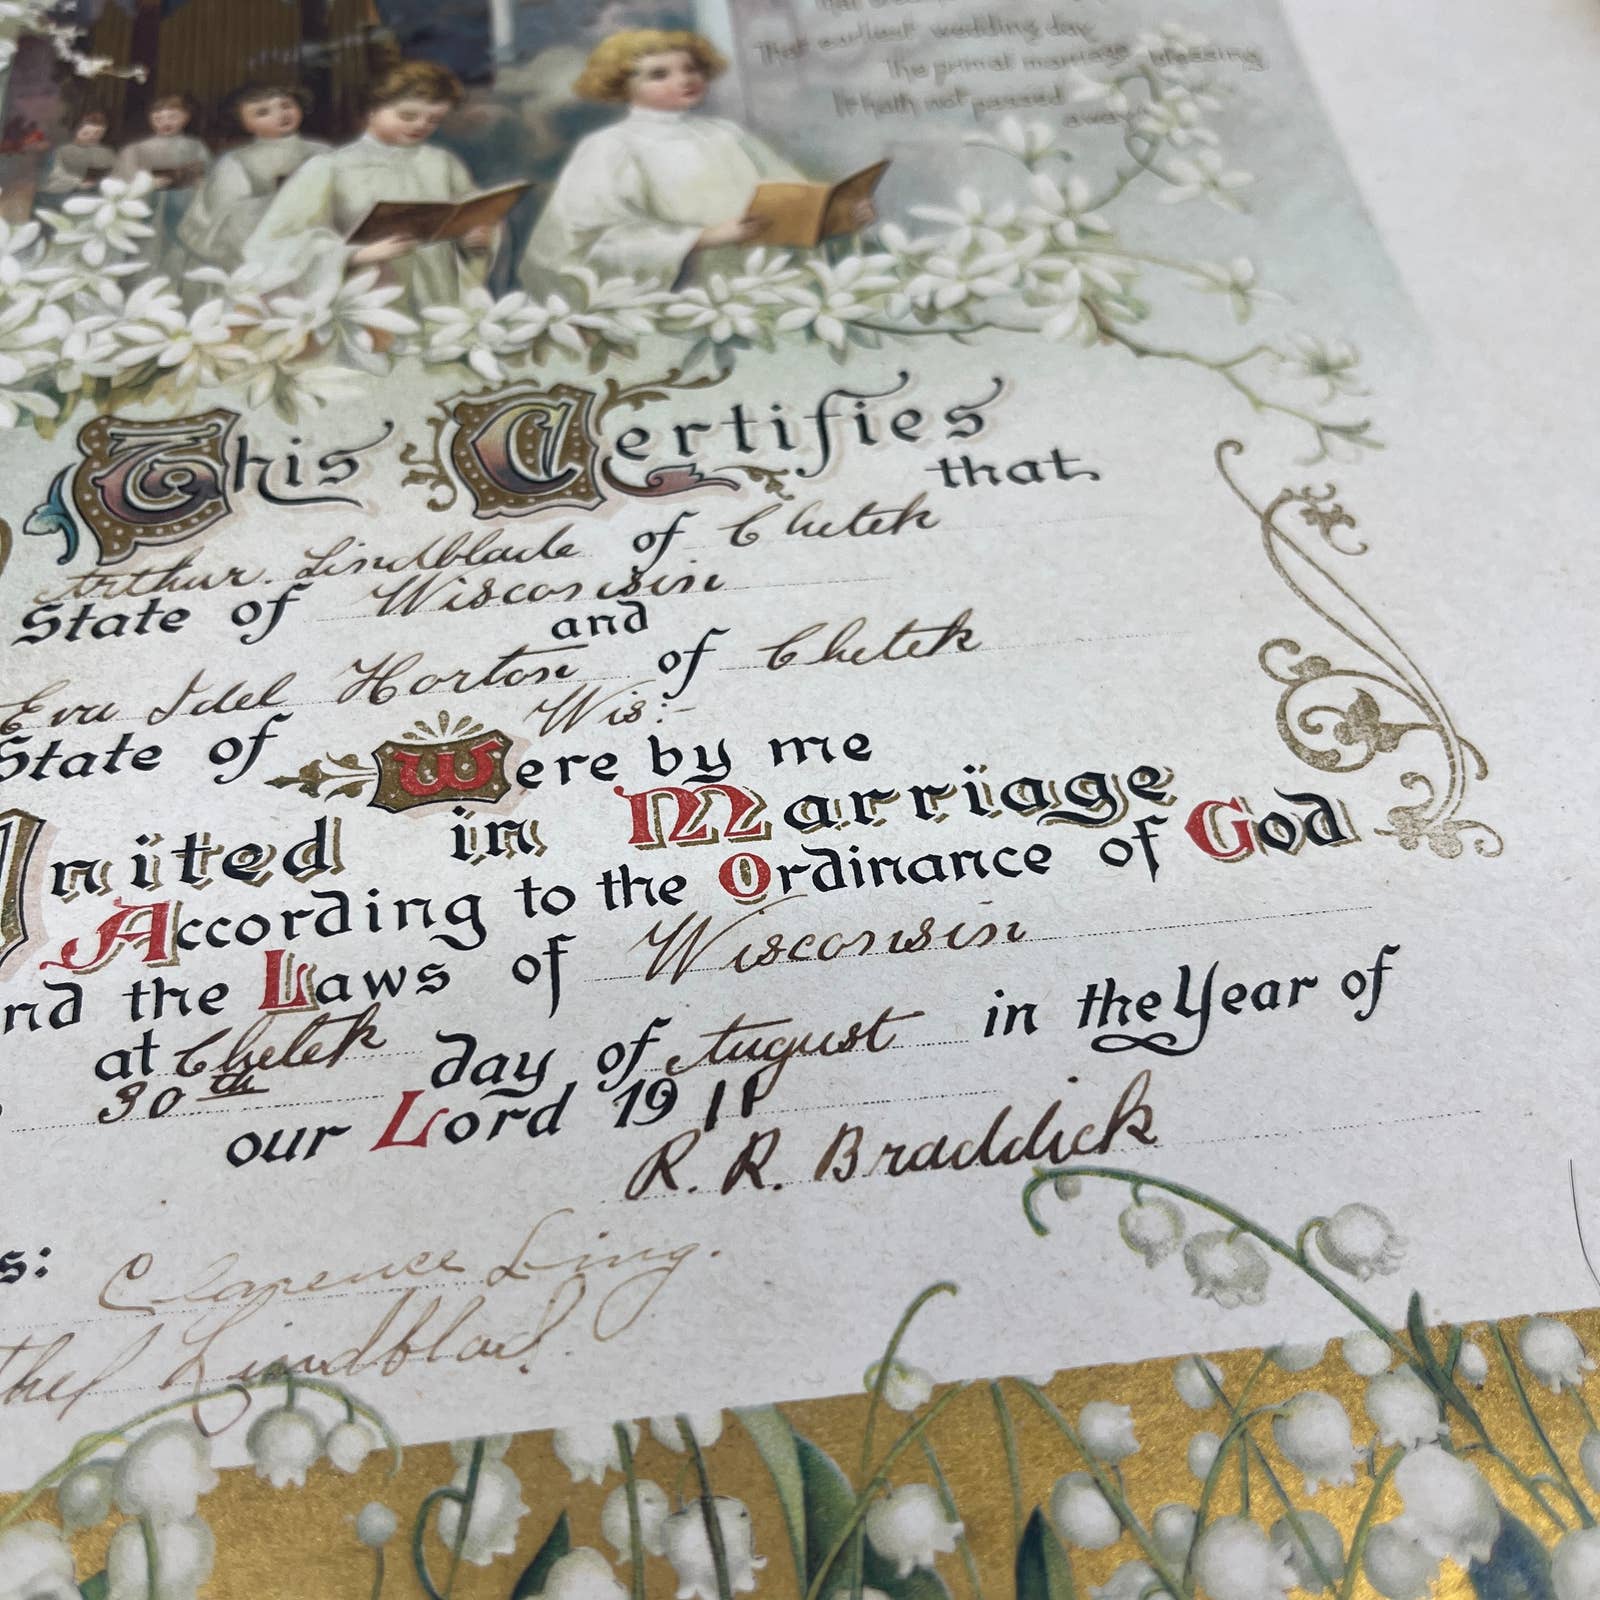 That earliest wedding day
The primal marriage blessing
It hath not passed
away
This Certifies
that
Arthur. Lindblade of Chetek
State of Wisconsin
and
Eva Idel Horton of Chetek
State of Wis:-
Were by me
United in Marriage
According to the Ordinance of God
nd the Laws of Wisconsin
at Chetek
30th day of August in the Year of
our Lord 1911
R. R. Braddick
s: Clarence Ling.
thel Lindblad.